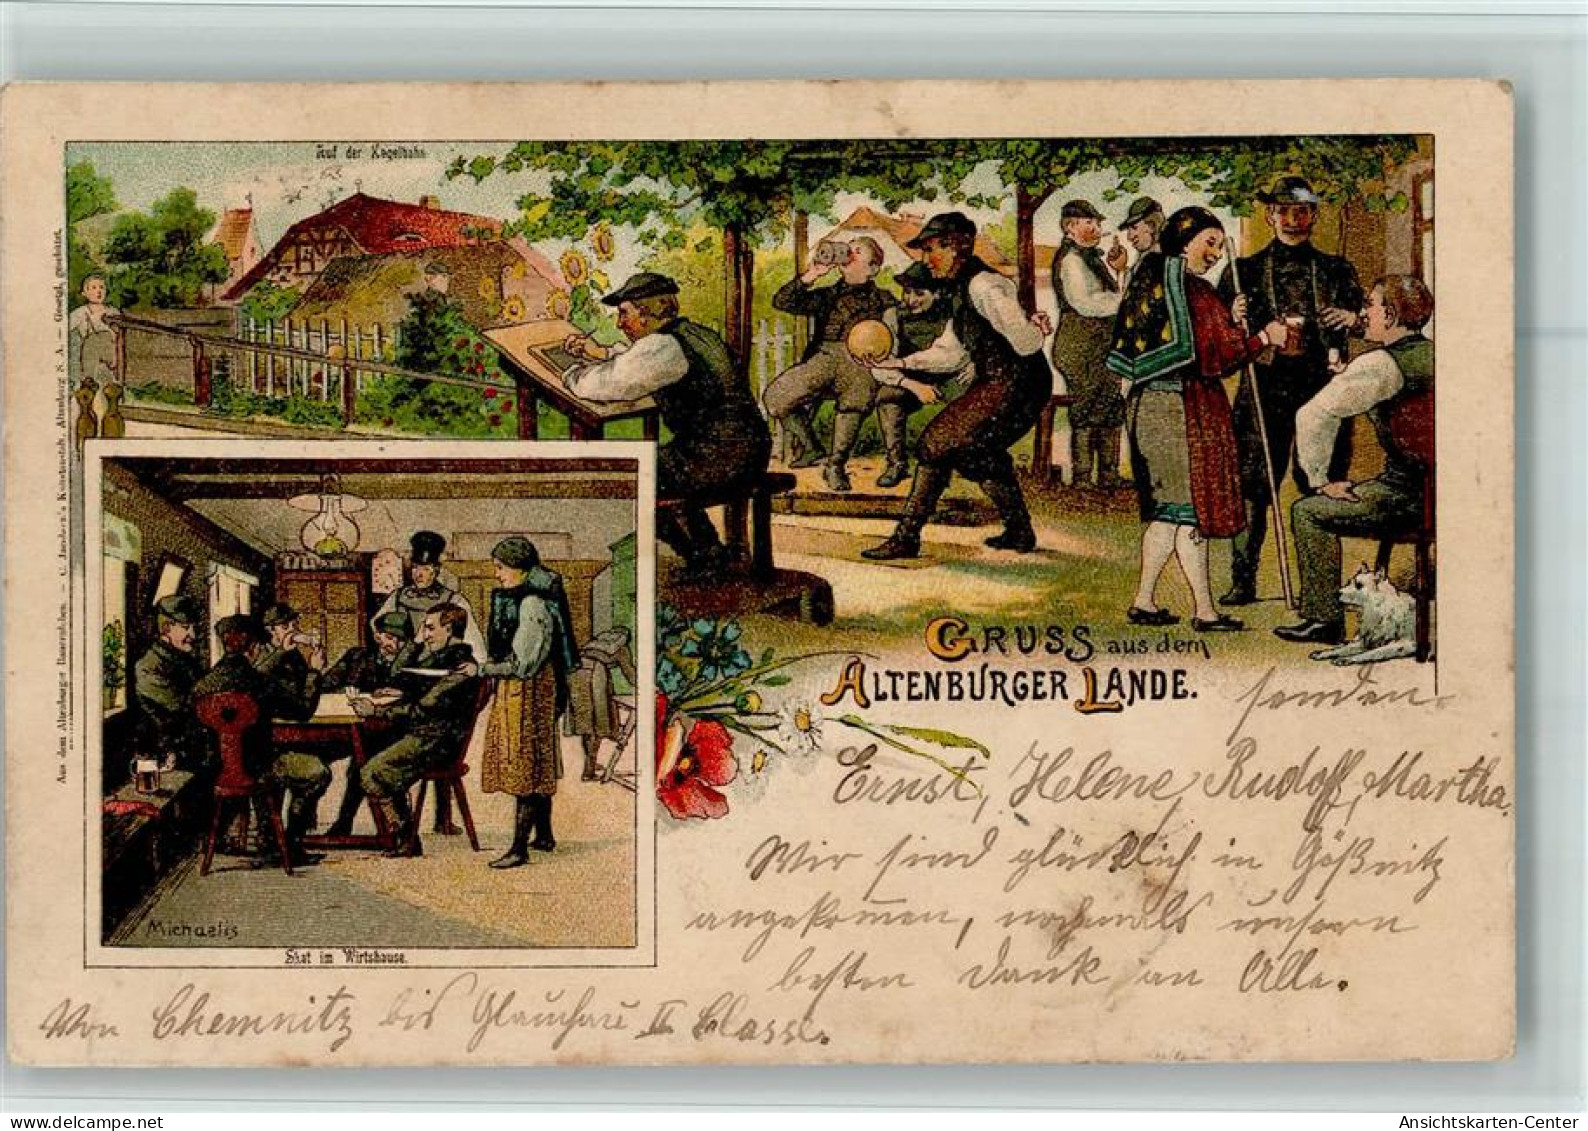 Auf der Kegelbahn
GRUSS aus dem
ALTENBURGER LANDE.
senden
Ernst, Helene, Rudolf, Martha.
Wir sind glücklich in Gößnitz
angekommen, nochmals unsern
besten Dank an Alle.
Von Chemnitz bis Glauchau II Classe.
Michaelis
Skat im Wirtshause.
Aus dem Altenburger Bauernleben. — C. Jacobsen's Kunstanstalt, Altenburg S. A. — Gesetzl. geschützt.
Ansichtskarten-Center